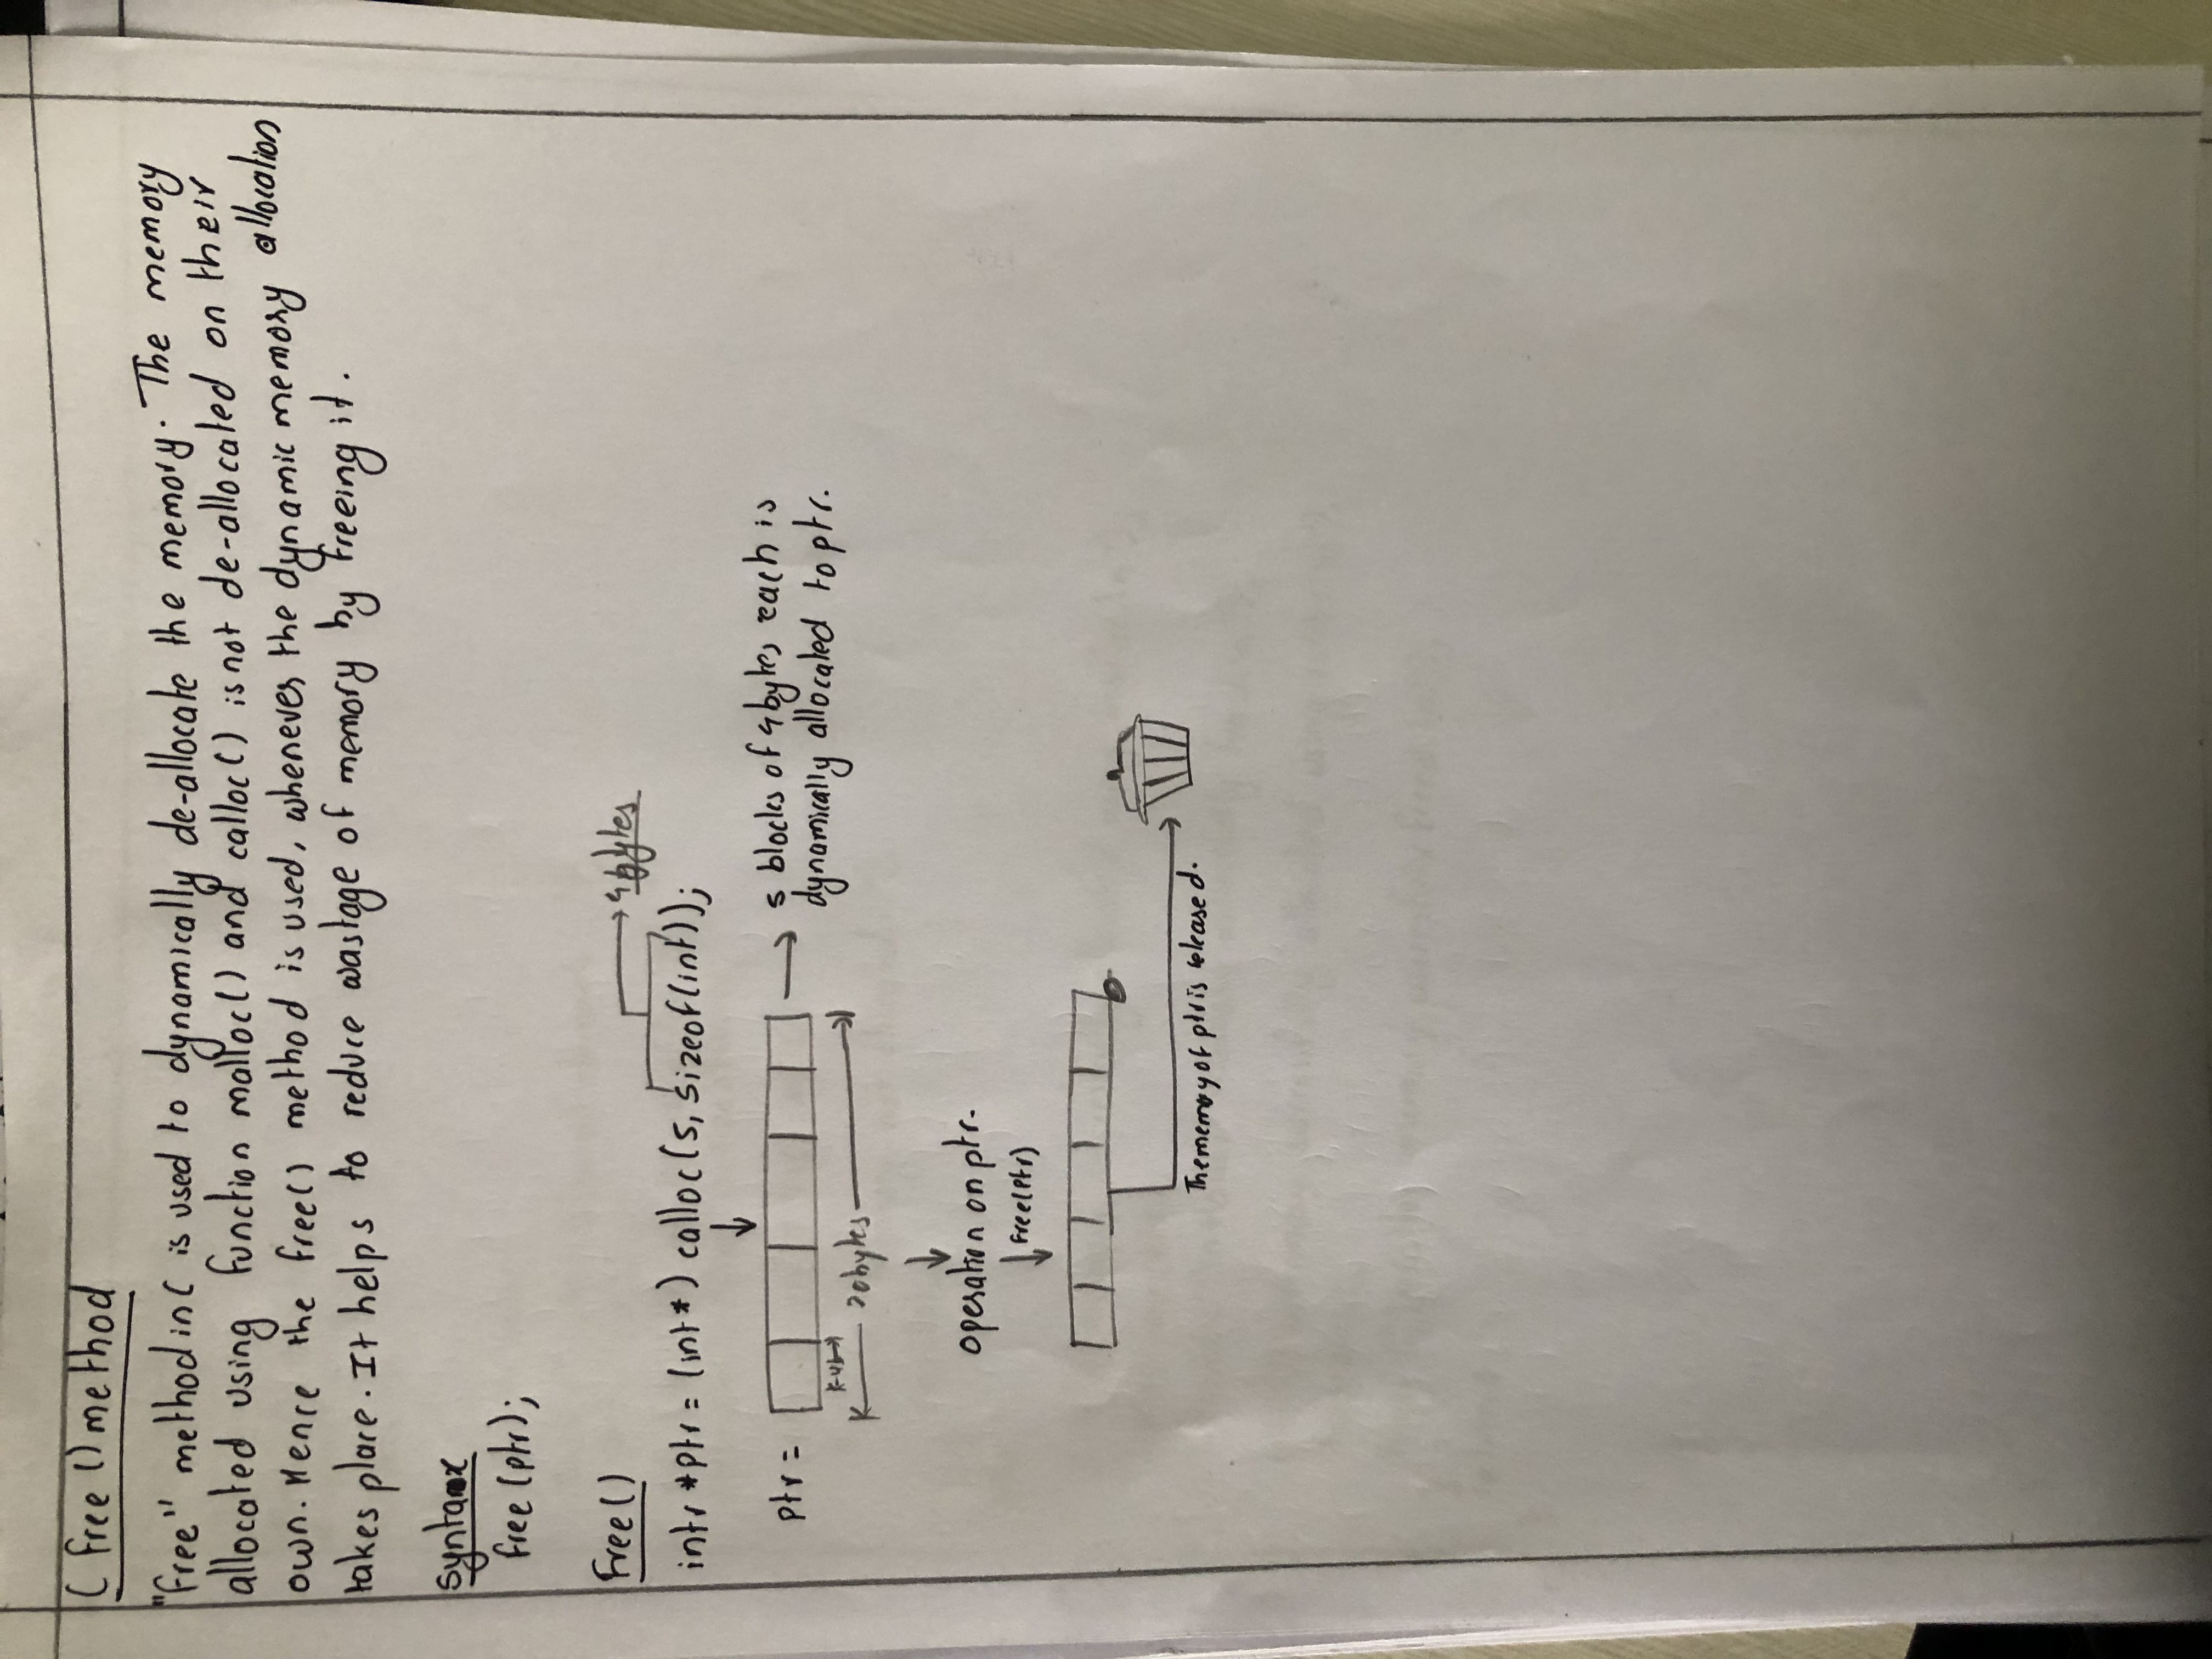 C free () method
"free" method in C is used to dynamically de-allocate the memory. The memory
allocated using function malloc() and calloc() is not de-allocated on their
own. Hence the free() method is used, whenever the dynamic memory allocation
takes place. It helps to reduce wastage of memory by freeing it.
syntax
free (ptr);
Free()
4 bytes
int *ptr = (int*) calloc(5, sizeof(int));
ptr =
5 blocks of 4 bytes each is
dynamically allocated to ptr.
4b
20 bytes
operation on ptr.
free(ptr)
The memory of ptr is released.